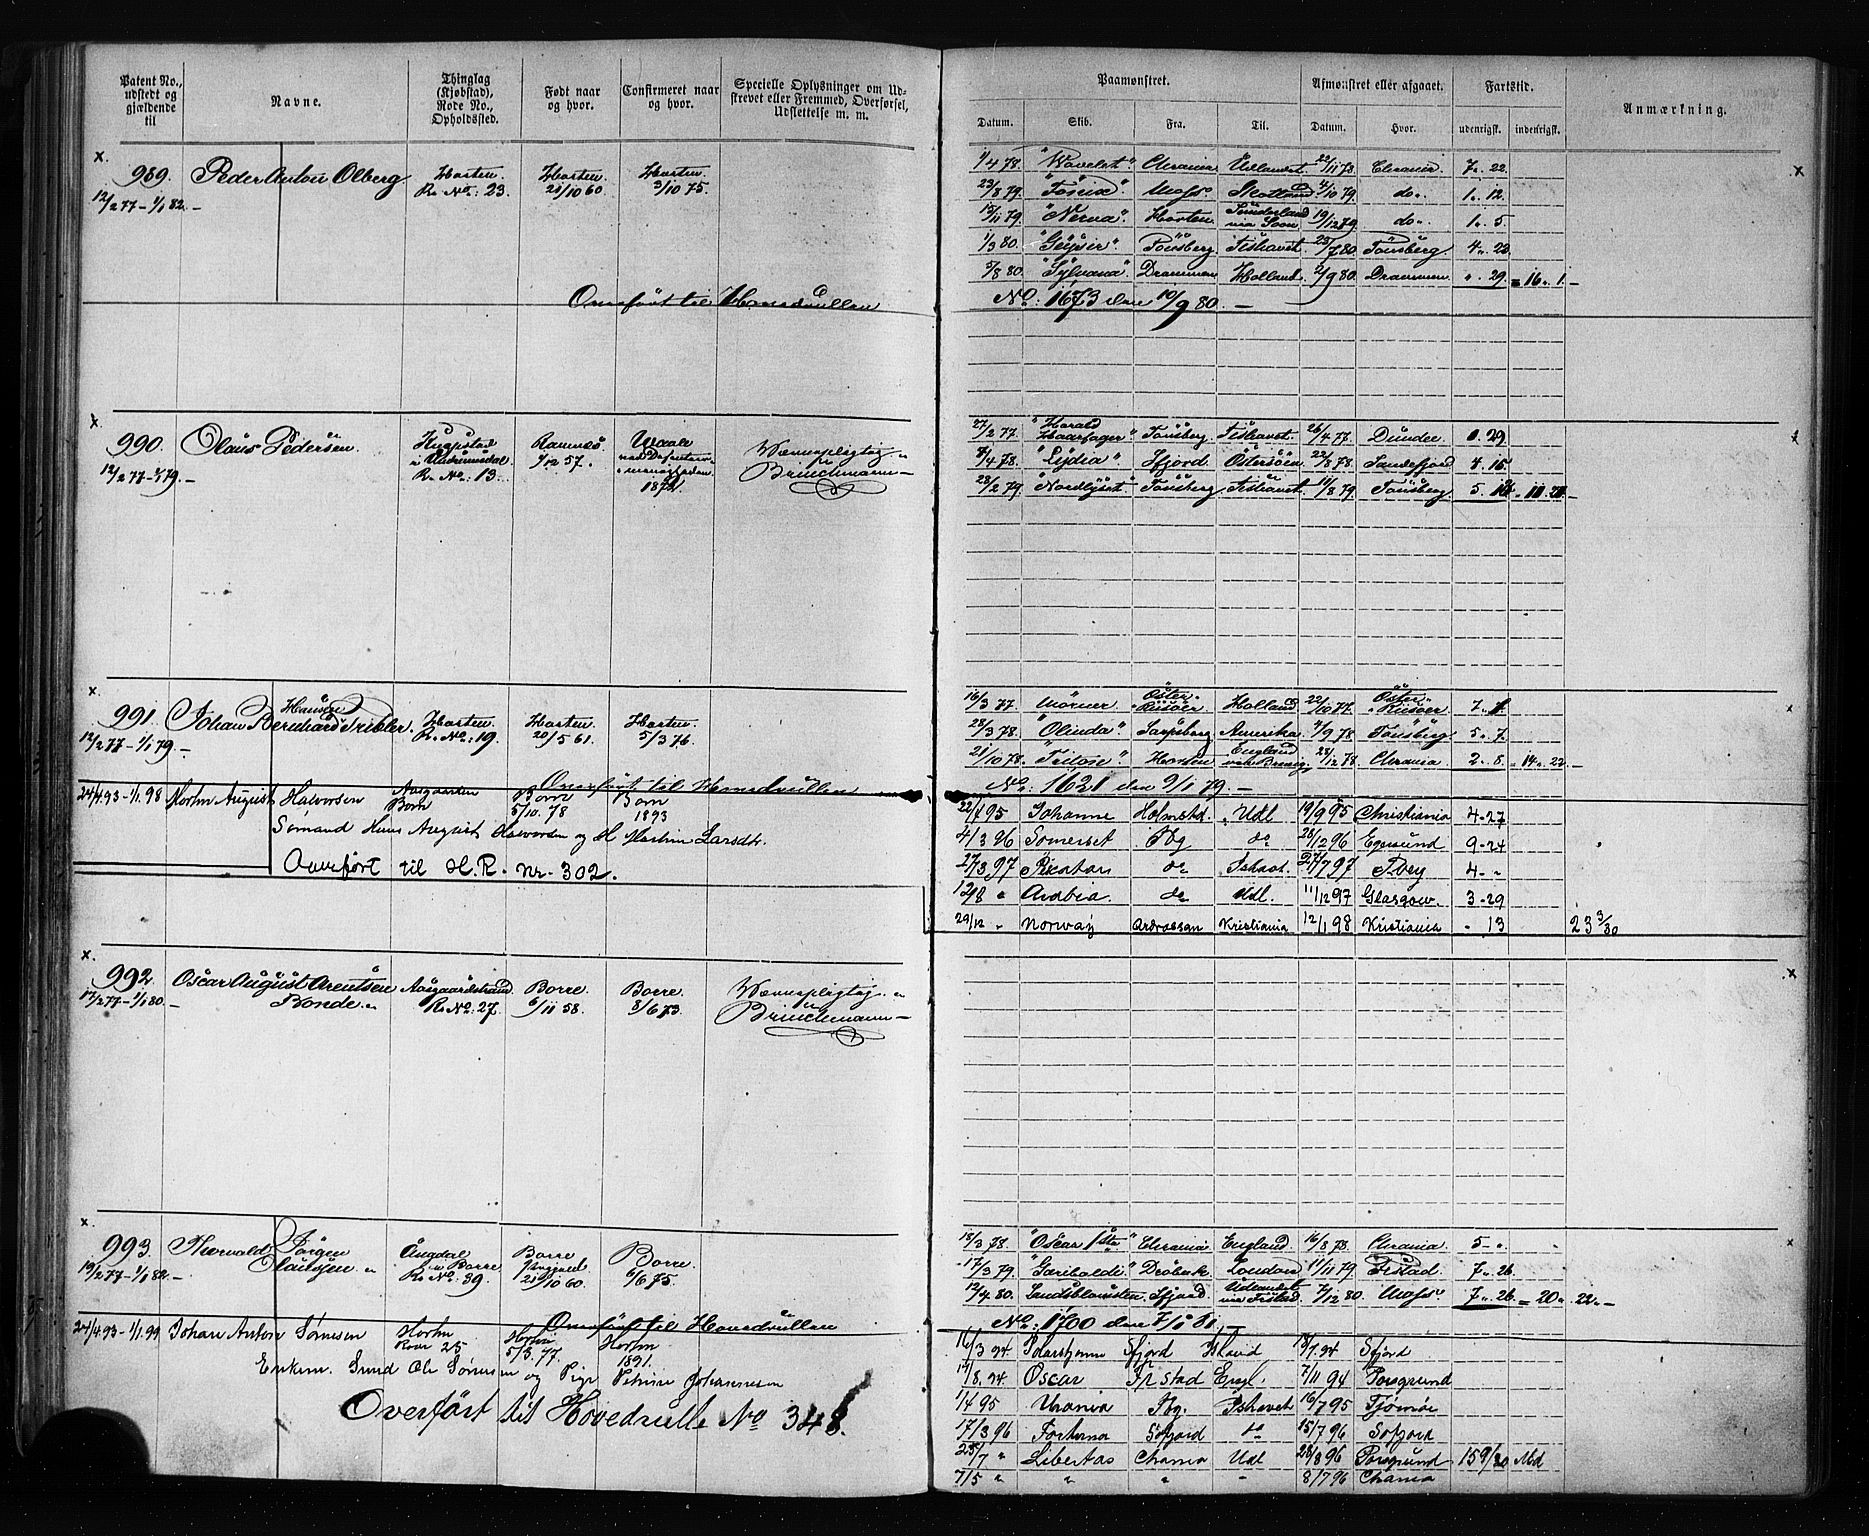 Patent No., udstedt og gjældende til
Navne.
Thinglag (Kjøbstad), Rode No., Opholdssted.
Født naar og hvor.
Confirmeret naar og hvor.
Specielle Oplysninger om Udskrevet eller Fremmed, Overførsel, Udslettelse m. m.
Paamønstret.
Afmønstret eller afgaaet.
Fartstid.
Anmærkning.
Datum. Skib. Fra. Til. Datum. Hvor. udenrigsk. indenrigsk.
x.
989. Peder Anton Olberg Horten Horten Horten
12/2 77 – 1/1 82. – R. No: 23. 21/10 60 3/10 75.
1/4 78. Chrania Udlandet 22/11 78. Chrania 7 " 22.
23/8 79. Moss. Skotland 4/10 79. do. 1 " 12.
15/11 79. "Nerva". Horten Sunderland 19/12 79. do. 1 " 5.
1/3 80. "Geysir". Tönsberg Fishavet 23/7 80. Tönsberg 4 " 23.
5/8 80. "Sylvana". Drammen Holland 2/9 80. Drammen " 29. = 16 " 1. –
Overført til Hovedrullen No: 1673 den 10/9 80. –
x.
990. Olaus Pedersen Ramnæs Vaale Værnepligtig
12/2 77 – 1/1 79. – i Undrumsdal. R. No: 13. 1/12 57. Brinchmann
27/2 77. "Harald Haarfager" Tönsberg Fishavet 26/4 77. Dundee 1. 29.
8/4 78. "Lydia" Sfjord Östersöen 22/8 78. Sandefjord 4. 15.
28/2 79. "Nordlyset" Tönsberg Fishavet 11/8 79. Tönsberg 5.
x.
991. Johan Bernhard Hansen Tribler. Horten Horten Horten
12/2 77 – 1/1 79. – R. No: 19. 20/5 61. 5/3 76.
16/3 77. Mörner Öster-Riisöer Holland 22/10 77. Öster-Riisöer 7 "
28/3 78. "Olinda" Sarpsborg Amerika 4/9 78 Tönsberg 5 " 7.
21/10 78. Horten England 28/12 78. Chrania 2 " 8. = 14 " 22. –
Overført til Hovedrullen No: 1621 den 9/1 79. –
24/4 93 – 1/1. 98 Morten August Halvorsen Aasgaarden Borre Borre 5/10. 78 Borre 1893
Sømand Hans August Halvorsen og H. Martin Larsdt.
Overført til H. R. nr. 302.
22/1 95 Johanne Holmstd. Udl 19/9 95 Christiania 4 - 27
4/3 96 Somerset Tbg do 28/12 96 Egersund 9 - 24
27/3 97 do Ishavet 27/7 97 Tbg 4 - "
12/8 " Arabia do Udl. 11/12 97 Glasgow. 3 - 29
29/12 " Norway Ardrossan Kristiania 12/1 98 Kristiania " 13 23 3/30
x.
992. Oscar August Arentsen Bonde. Aasgaardstrand Borre. Borre. Værnepligtig
12/2 77 – 1/1 80. – R. No: 27. 6/11 58. 8/6 73. Brinchmann
x.
993. Thorvald Jörgen Paulsen Borre Borre.
19/2 77 – 1/1 82. – R. No: 39. 21/10 60. 4/6 75.
12/3 78. "Oscar 1ste" Chrania England 16/8 78. Chrania. 5 " "
17/3 79. "Garibaldi" Dröbak London 11/11 79. Fstad. 7 " 26.
12/4 80. Sandsblomsten Sfjord Udlandet via Fstad 7/12 80. Moss 7 " 26. = 20 " 22. –
Overført til Hovedrullen No: 1700 den 7/1 81. –
24/4 93 – 1/1. 99 Johan Anton Sørensen Horten Rode 25 Horten 5/3. 77 Horten 1891.
Enkem. Smed Ole Sørensen og Pige Petrine Johannesen
Overført til Hovedrulle No 348.
16/3 94 Polarstjernen Sfjord Ishavet 18/7. 94 Sfjord
14/8. 94 Oscar Frstad Engl. 7/11 94 Porsgrund
1/4 95 Urania Tbg. Ishavet 16/7 95 Tjömöe
17/3 96 Fortuna Sfjord do 15/7 96 Sfjord
25/7 " Libertas Chania Udl 28/8 96 Porsgrund 15 9/30 Md
7/5 " " " " 8/7 96 Chania